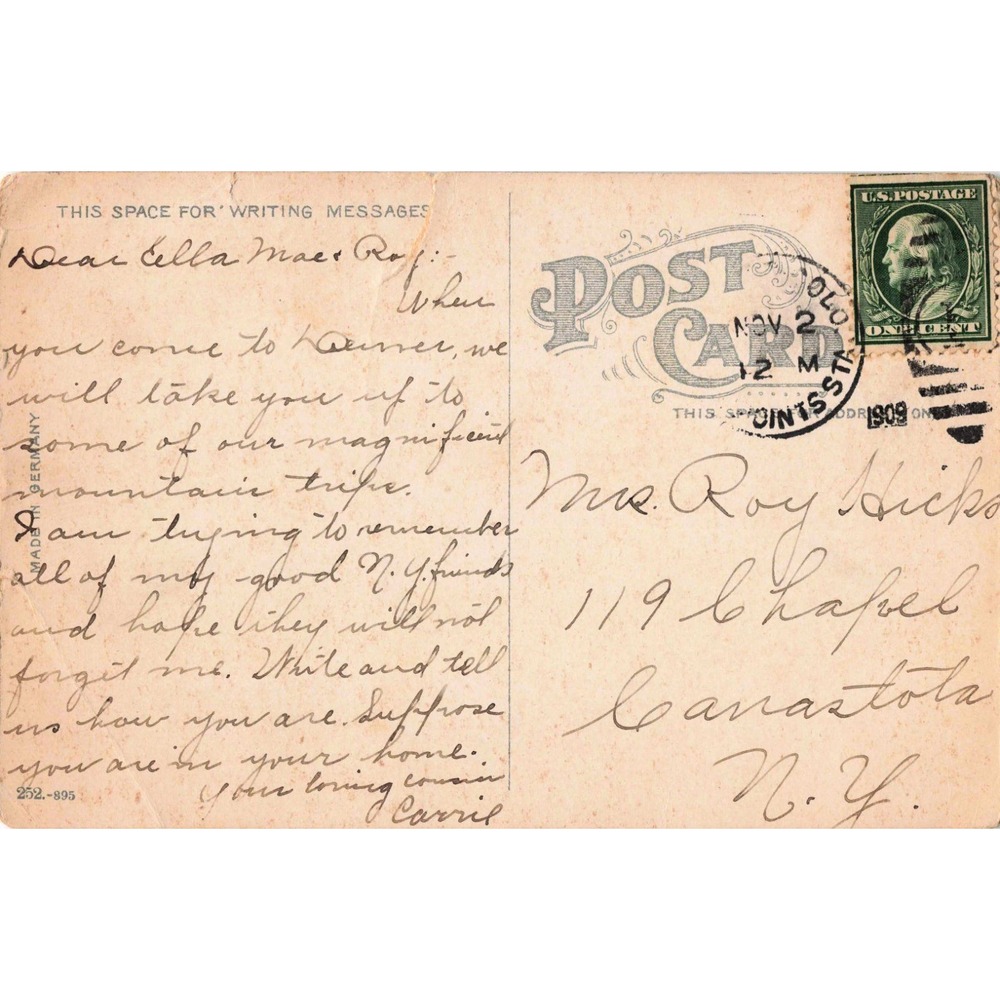 THIS SPACE FOR WRITING MESSAGES
Dear Ella Mae & Roy:-
When
you come to Denver, we
will take you up to
some of our magnificent
mountain trips.
I am trying to remember
all of my good N.Y. friends
and hope they will not
forget me. Write and tell
us how you are. Suppose
you are in your home.
Your loving cousin
Carrie
MADE IN GERMANY
252.-895
POST CARD
THIS SPACE FOR ADDRESS ON
U.S. POSTAGE
ONE CENT
COLO
NOV 2
12 M
1909
Mrs. Roy Hicks
119 Chapel
Canastota
N.Y.